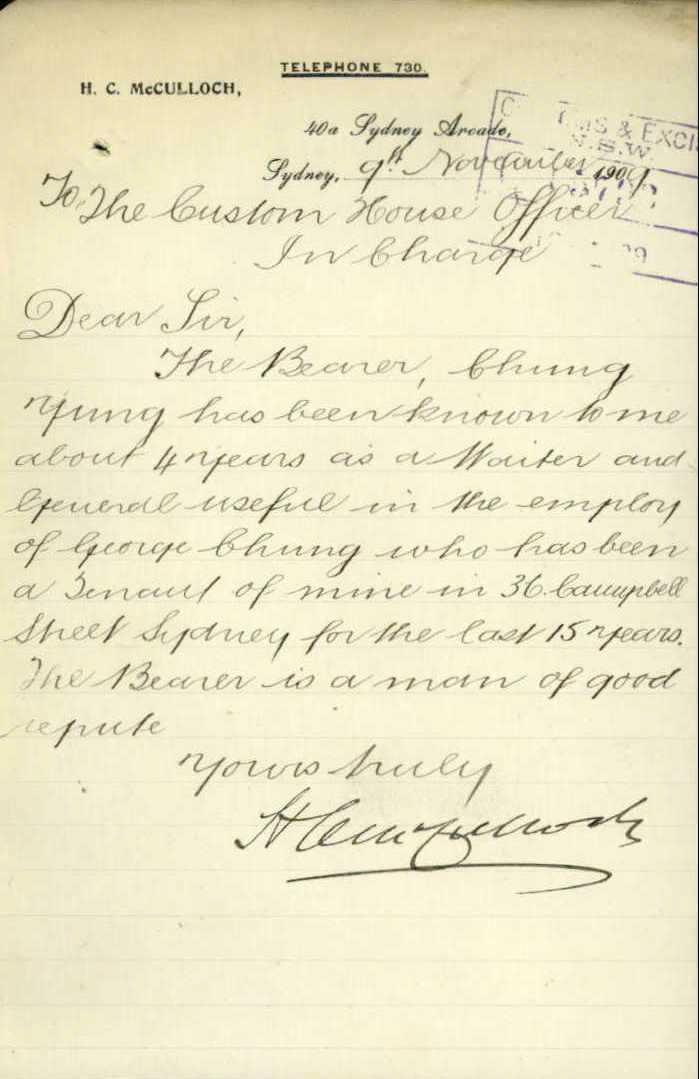 TELEPHONE 730.
H. C. McCULLOCH,
40a Sydney Arcade,
Sydney, 9th November 1909
CUSTOMS & EXCI
N.S.W.
To The Custom House Officer
In Charge
Dear Sir,
The Bearer, Chung
Yung has been known to me
about 4 years as a Waiter and
General useful in the employ
of George Chung who has been
a Tenant of mine in 36 Campbell
Street Sydney for the last 15 years.
The Bearer is a man of good
repute
Yours truly
H C McCulloch